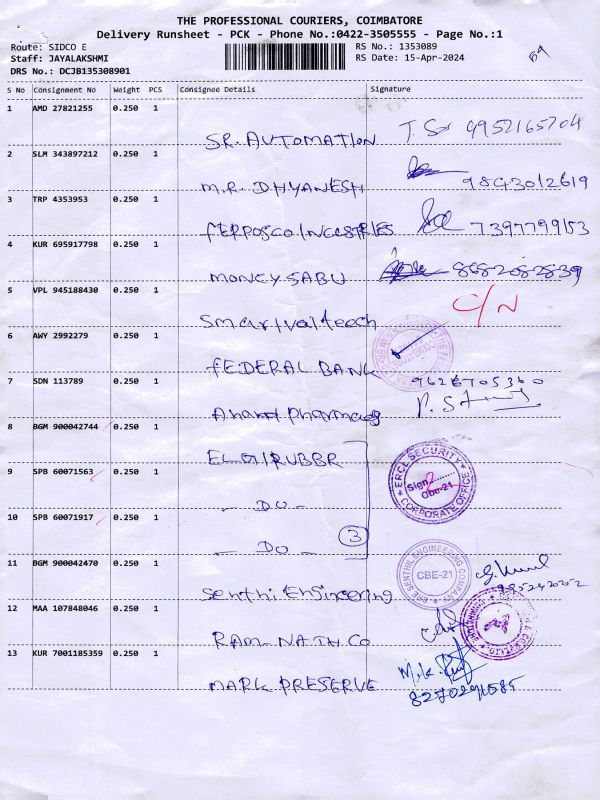 THE PROFESSIONAL COURIERS, COIMBATORE
Delivery Runsheet - PCK - Phone No.:0422-3505555 - Page No.:1
Route: SIDCO E
RS No.: 1353089
Staff: JAYALAKSHMI
RS Date: 15-Apr-2024
DRS No.: DCJB135308901
S No Consignment No Weight PCS Consignee Details Signature
1 AMD 27821255 0.250 1
SR. AUTOMATION T.S 9952165704
2 SLM 343897212 0.250 1
M.R. DHYANESH 9843012619
3 TRP 4353953 0.250 1
7397799153
4 KUR 695917798 0.250 1
MONEY SABU 8682082839
5 VPL 945188430 0.250 1
C/N
6 AWY 2992279 0.250 1
FEDERAL BANK
7 SDN 113789 0.250 1
9626705360
Anant Pharmacy
8 BGM 900042744 0.250 1
ELGIRUBBR
9 SPB 60071563 0.250 1
ERCL SECURITY
Sign
Cbe-21
CORPORATE OFFICE
- DO -
10 SPB 60071917 0.250 1
- DO - 3
11 BGM 900042470 0.250 1
THE SENTHIL ENGINEERING COMPANY
CBE-21
Senthi Engineering
12 MAA 107848046 0.250 1
RAM NATH CO
13 KUR 7001185359 0.250 1
M.K.
MARK PRESERVE 8270291585